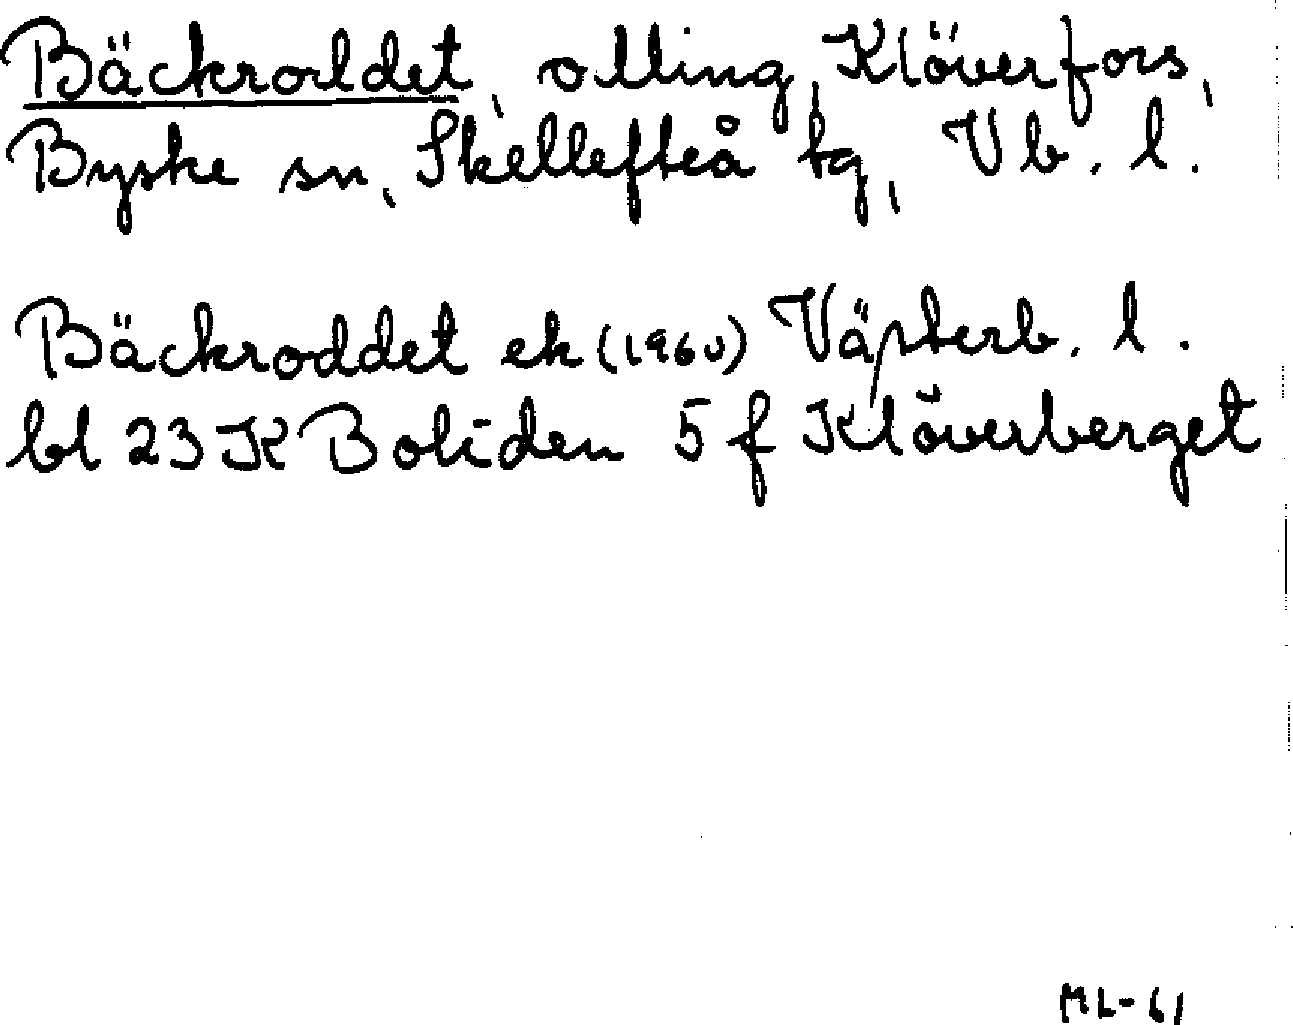 Bäckroddet, odling, Klöverfors,
Byske sn, Skellefteå tg, Vb. l.
Bäckroddet ek (1960) Västerb. l.
bl 23 K Boliden 5 f Klöverberget
ML-61